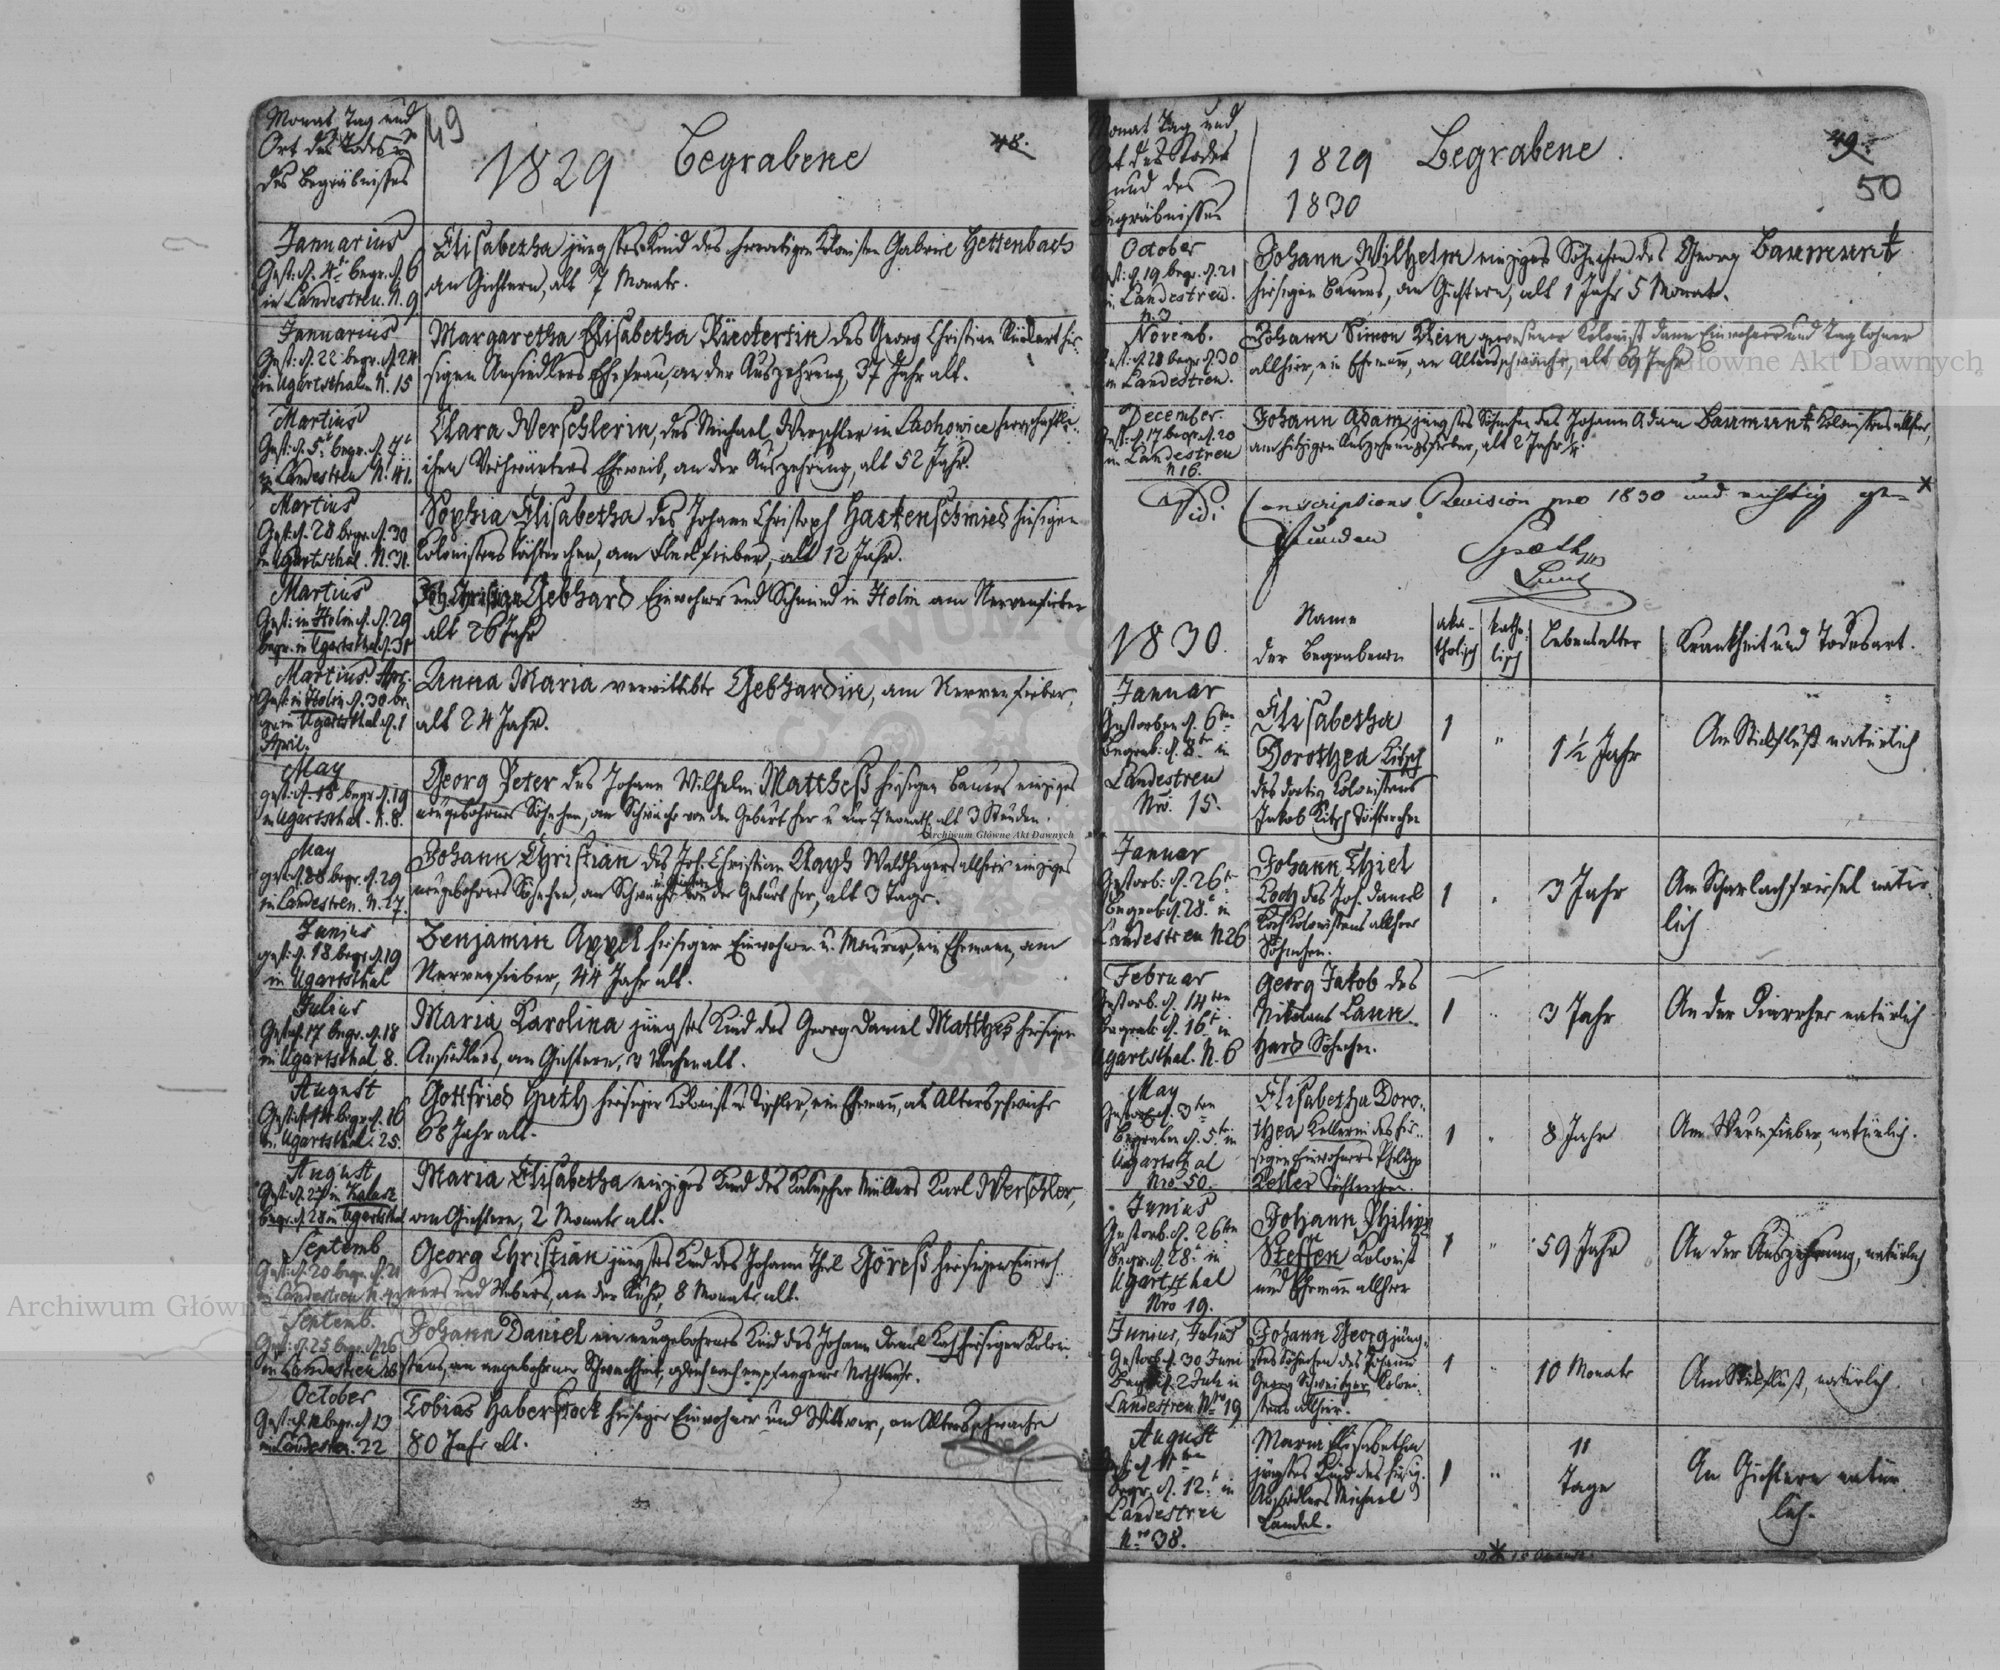 Monat Tag und
Ort des Todes u
des Begräbnisses
49
1829 Begrabene
48.
Januarius
Gest: d. 4t begr. d. 6
in Landestreu. N. 9
Elisabetha jüngstes Kind des Kolonisten Gabriel Hettenbach
an Gichtern, alt 7 Monate.
Januarius
Gest: d. 22 begr. d. 24
in Ugartsthal N. 15
Margaretha Elisabetha Rückertin des Georg Christian Rückert hie-
sigen Ansiedlers Ehefrau, an der Auszehrung, 37 Jahr alt.
Martius
Gest: d. 5t begr. d. 7t
in Landestreu N. 41.
Clara Werschlerin, des Michael Werschler in Lachowice herrschaftli-
chen Eheweib, an der Auszehrung, alt 52 Jahr.
Martius
Gest. d. 28 begr. d. 30
in Ugartsthal. N. 31.
Sophia Elisabetha des Johann Christoph Hastenschmied hiesigen
Kolonistens Töchterchen, am Fleckfieber, alt 12 Jahr.
Martius
Gest: in Holin d. 29
begr. in Ugartsthal d. 31
Joh. Christian Gebhard Einwohner und Schmied in Holin am Nervenfieber
alt 26 Jahr
Martius Apr.
Gest: in Holin d. 30 be-
gr. in Ugartsthal d. 1
April.
Anna Maria verwittibte Gebhardin, am Nervenfieber,
alt 24 Jahr.
May
gest: d. 18 begr. d. 19
in Ugartsthal. N. 8.
Georg Peter des Johann Wilhelm Matthes hiesigen Bauers einziges
neugebohrnes Söhnchen, an Schwäche von der Geburt her u nur 7 monath. alt 3 Stunden.
May
gest. d. 28 begr. d. 29
in Landestreu. N. 17.
Johann Christian des Joh. Christian Waldhegers allhier einziges
neugebohrnes Söhnchen, an Schwäche von der Geburt her, alt 3 Tage.
Junius
gest: d. 18 begr. d. 19
in Ugartsthal
Benjamin Appel hiesiger Einwohner u. Maurer, ein Ehemann, am
Nervenfieber, 44 Jahr alt.
Julius
Gest. d. 17 begr. d. 18
in Ugartsthal, 8.
Maria Karolina jüngstes Kind des Georg Daniel Matthes hiesigen
Ansiedlers, an Gichtern, 3 Wochen alt.
August
Gest. d. 14 begr. d. 16
in Ugartsthal. 25.
Gottfried Huth hiesiger Kolonist u. Tischler, ein Ehemann, an Altersschwäche
68 Jahr alt.
August
Gest. d. 27 in Kalusz
begr. d. 28 in Ugartsthal
Maria Elisabetha einziges Kind des Kaluscher Müllers Karl Werschler,
an Gichtern, 2 Monate alt.
Septemb
Gest: d. 20 begr. d. 21
in Landestreu N. 42
Georg Christian jüngstes Kind des Johann Thiel Göres hiesigen Einwoh-
ners und Webers, an der Ruhr, 8 Monate alt.
Septemb.
Gest: d. 25 begr. d. 26
in Landestreu 26
Johann Daniel ein neugebohrnes Kind des Johann Daniel hiesigen Koloni-
stens, an angebohrner Schwachheit, gleich nach empfangener Nothtaufe.
October
Gest: d. begr. d. 13
in Landestr. 22
Tobias Haberstock hiesiger Einwohner und Wittwer, an Altersschwäche
80 Jahr alt.
Monat Tag und
Ort des Todes
und des
Begräbnisses
1829 Begrabene.
1830
49.
50
October
Gest: d. 19 begr. d. 21
in Landestreu.
N. 3
Johann Wilhelm einziges Söhnchen des Georg Baumunk
hiesigen Bauers, an Gichtern, alt 1 Jahr 5 Monat.
Novemb.
Gest: d. 28 begr. d. 30
in Landestreu.
Johann Simon Klein gewesener Kolonist dann Einwohner und Taglöhner
allhier, ein Ehemann, an Altersschwäche, alt 69 Jahr
December.
Gest: d. 17 begr. d. 20
in Landestreu
N 16.
Johann Adam jüngstes Söhnchen des Johann Adam Baumunk Kolonistens allhier,
am hitzigen Auszehrungsfieber, alt 2 Jahr
Vidi Conscriptions Revision pro 1830 und richtig ge-
funden
1830.
Name
der Begrabenen
aka-
tholisch
katho-
lisch
Lebensalter
Krankheit und Todesart.
Januar
Gestorben d. 6ten
Begrab: d. 8t in
Landestreu
Nro. 15.
Elisabetha
Dorothea Kitsch
des dortig Kolonistens
Jakob Kitsch Töchterchen
1
"
1½ Jahr
Am Stickfluß natürlich
Januar
Gestorb: d. 26t
Begrab. d. 28t in
Landestreu N 26
Johann Thiel
Koch des Joh. Daniel
Koch Kolonistens allhier
Söhnchen.
1
"
3 Jahr
Am Scharlachfriesel natür-
lich
Februar
Gestorb. d. 14ten
Begrab. d. 16t in
Ugartsthal. N. 6
Georg Jakob des
Nikolaus Laun-
hard Söhnchen.
1
"
3 Jahr
An der Diarrhee natürlich
May
Gestorb. d. 3ten
Begraben d. 5t in
Ugartsthal
Nro 50.
Elisabetha Doro-
thea Kellerin des hie-
sigen Einwohners Philipp
Keller Töchterchen.
1
"
8 Jahr
Am Wurmfieber, natürlich.
Junius
Gestorb. d. 26ten
Begr. d. 28t in
Ugartsthal
Nro 19.
Johann Philipp
Steffen Kolonist
und Ehemann allhier
1
"
59 Jahr
An der Auszehrung, natürlich
Junius, Julius
Gestorb. d. 30 Juni
Begr. d. 2 Juli in
Landestreu Nro 19
Johann Georg jüng-
stes Söhnchen des Johann
Georg Schweitzer Koloni-
stens allhier.
1
"
10 Monate
Am Stickfluß, natürlich.
August
Gest. d. 11ten
Begr. d. 12t in
Landestreu
Nro 38.
Maria Elisabetha
jüngstes Kind des hiesig.
Ansiedlers Michael
Landel.
1
"
11
Tage
An Gichtern natür-
lich.
Archiwum Główne Akt Dawnych
Archiwum Główne Akt Dawnych
Archiwum Główne Akt Dawnych